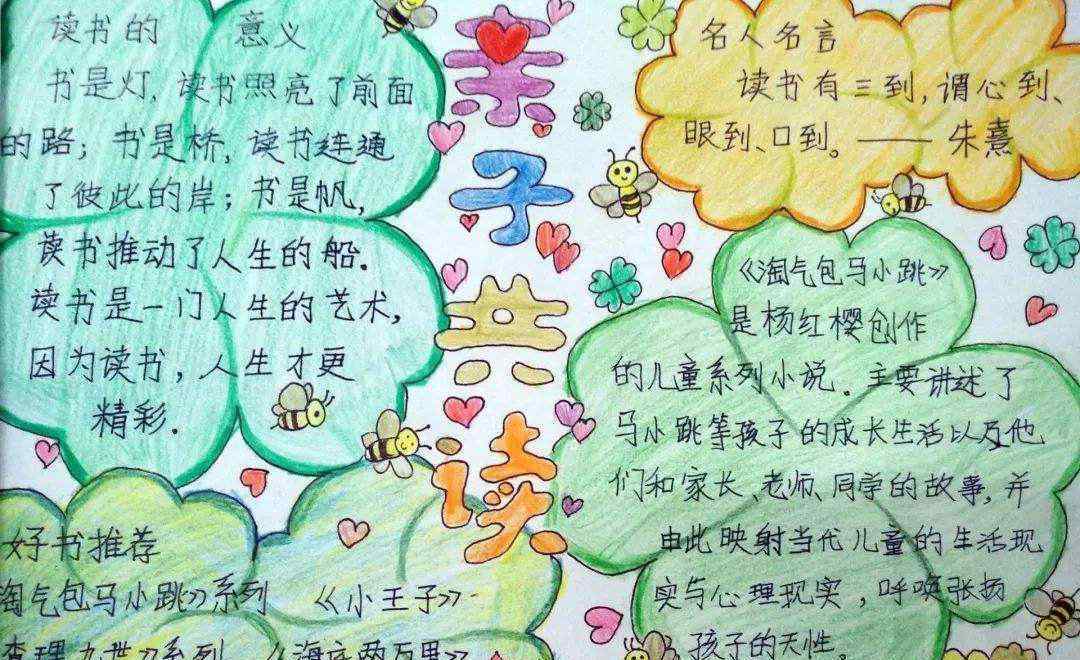 读书的 意义
书是灯，读书照亮了前面
的路；书是桥，读书连通
了彼此的岸；书是帆，
读书推动了人生的船.
读书是一门人生的艺术，
因为读书，人生才更
精彩.
亲
子
共
读
名人名言
读书有三到，谓心到、
眼到、口到。—— 朱熹
《淘气包马小跳》
是杨红樱创作
的儿童系列小说。主要讲述了
马小跳等孩子的成长生活以及他
们和家长、老师、同学的故事，并
由此映射当代儿童的生活现
实与心理现实，呼唤张扬
孩子的天性。
好书推荐
淘气包马小跳》系列 《小王子》
查理九世》系列 《海底两万里》